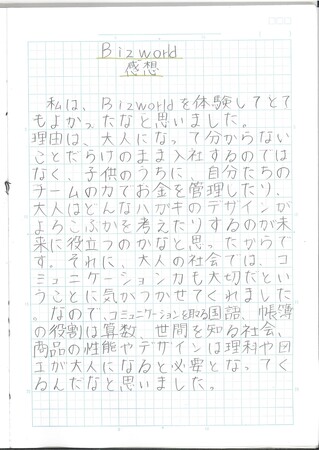 Bizworld
感想
私は、Bizworldを体験してとて
もよかったなと思いました。
理由は、大人になって分からない
ことだらけのまま入社するのでは
なく、子供のうちに、自分たちの
チームの力でお金を管理したり、
大人はどんなハガキのデザインが
よろこぶかを考えたりするのが未
来に役立つのかなと思ったからで
す。それに、大人の社会では、コ
ミュニケーション力も大切だとい
うことに気がつかせてくれました
。なので、コミュニケーションを取る国語、帳簿
の役割は算数、世間を知る社会、
商品の性能やデザインは理科や図
工が大人になると必要となってく
るんだなと思いました。